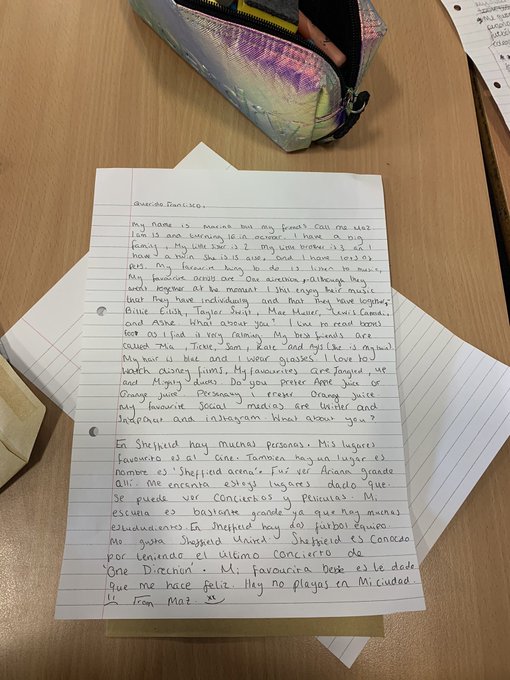 Querido Francisco,
My name is Marina but my friends call me Maz.
I am 15 and turning 16 in october. I have a big
family, My little sister is 2 my little brother is 3 an I
have a twin she is 15 also, and I have lots of
pets. My favourite thing to do is listen to music,
My favourite artists are One direction, although they
arent together at the moment I still enjoy their music
that they have individually and that they have together,
Billie Eilish, Taylor Swift, Mae Muller, Lewis Capaldi,
and Ashe. What about you? I like to read books
too as I find it very calming. My best friends are
called Mia, Tickle, Sam, Kate and Ays (she is my twin).
My hair is blue and I wear glasses. I love to
watch disney films, My favourites are Tangled, up
and Mighty ducks. Do you prefer Apple juice or
Orange juice. Personally I prefer Orange juice.
my favourite social medias are twitter and
Snapchat and instagram. What about you?
En Sheffield hay muchas personas. Mis lugares
favourito es al cine. Tambien hay un lugar es
nombre es 'Sheffield arena'. Fui ver Ariana grande
alli. Me encanta estoys lugares dado que
se puede ver conciertos y peliculas. Mi
escuela es bastante grande ya que hay muchas
estududientes. En Sheffield hay dos futbol equipo.
Me gusta Sheffield Unitd. Sheffield es Conocda
por teniendo el ultimo concierto de
'One Direction'. Mi favourira bebe es le dade
que me hace feliz. Hay no playas en Mi ciudad.
From Maz. xx